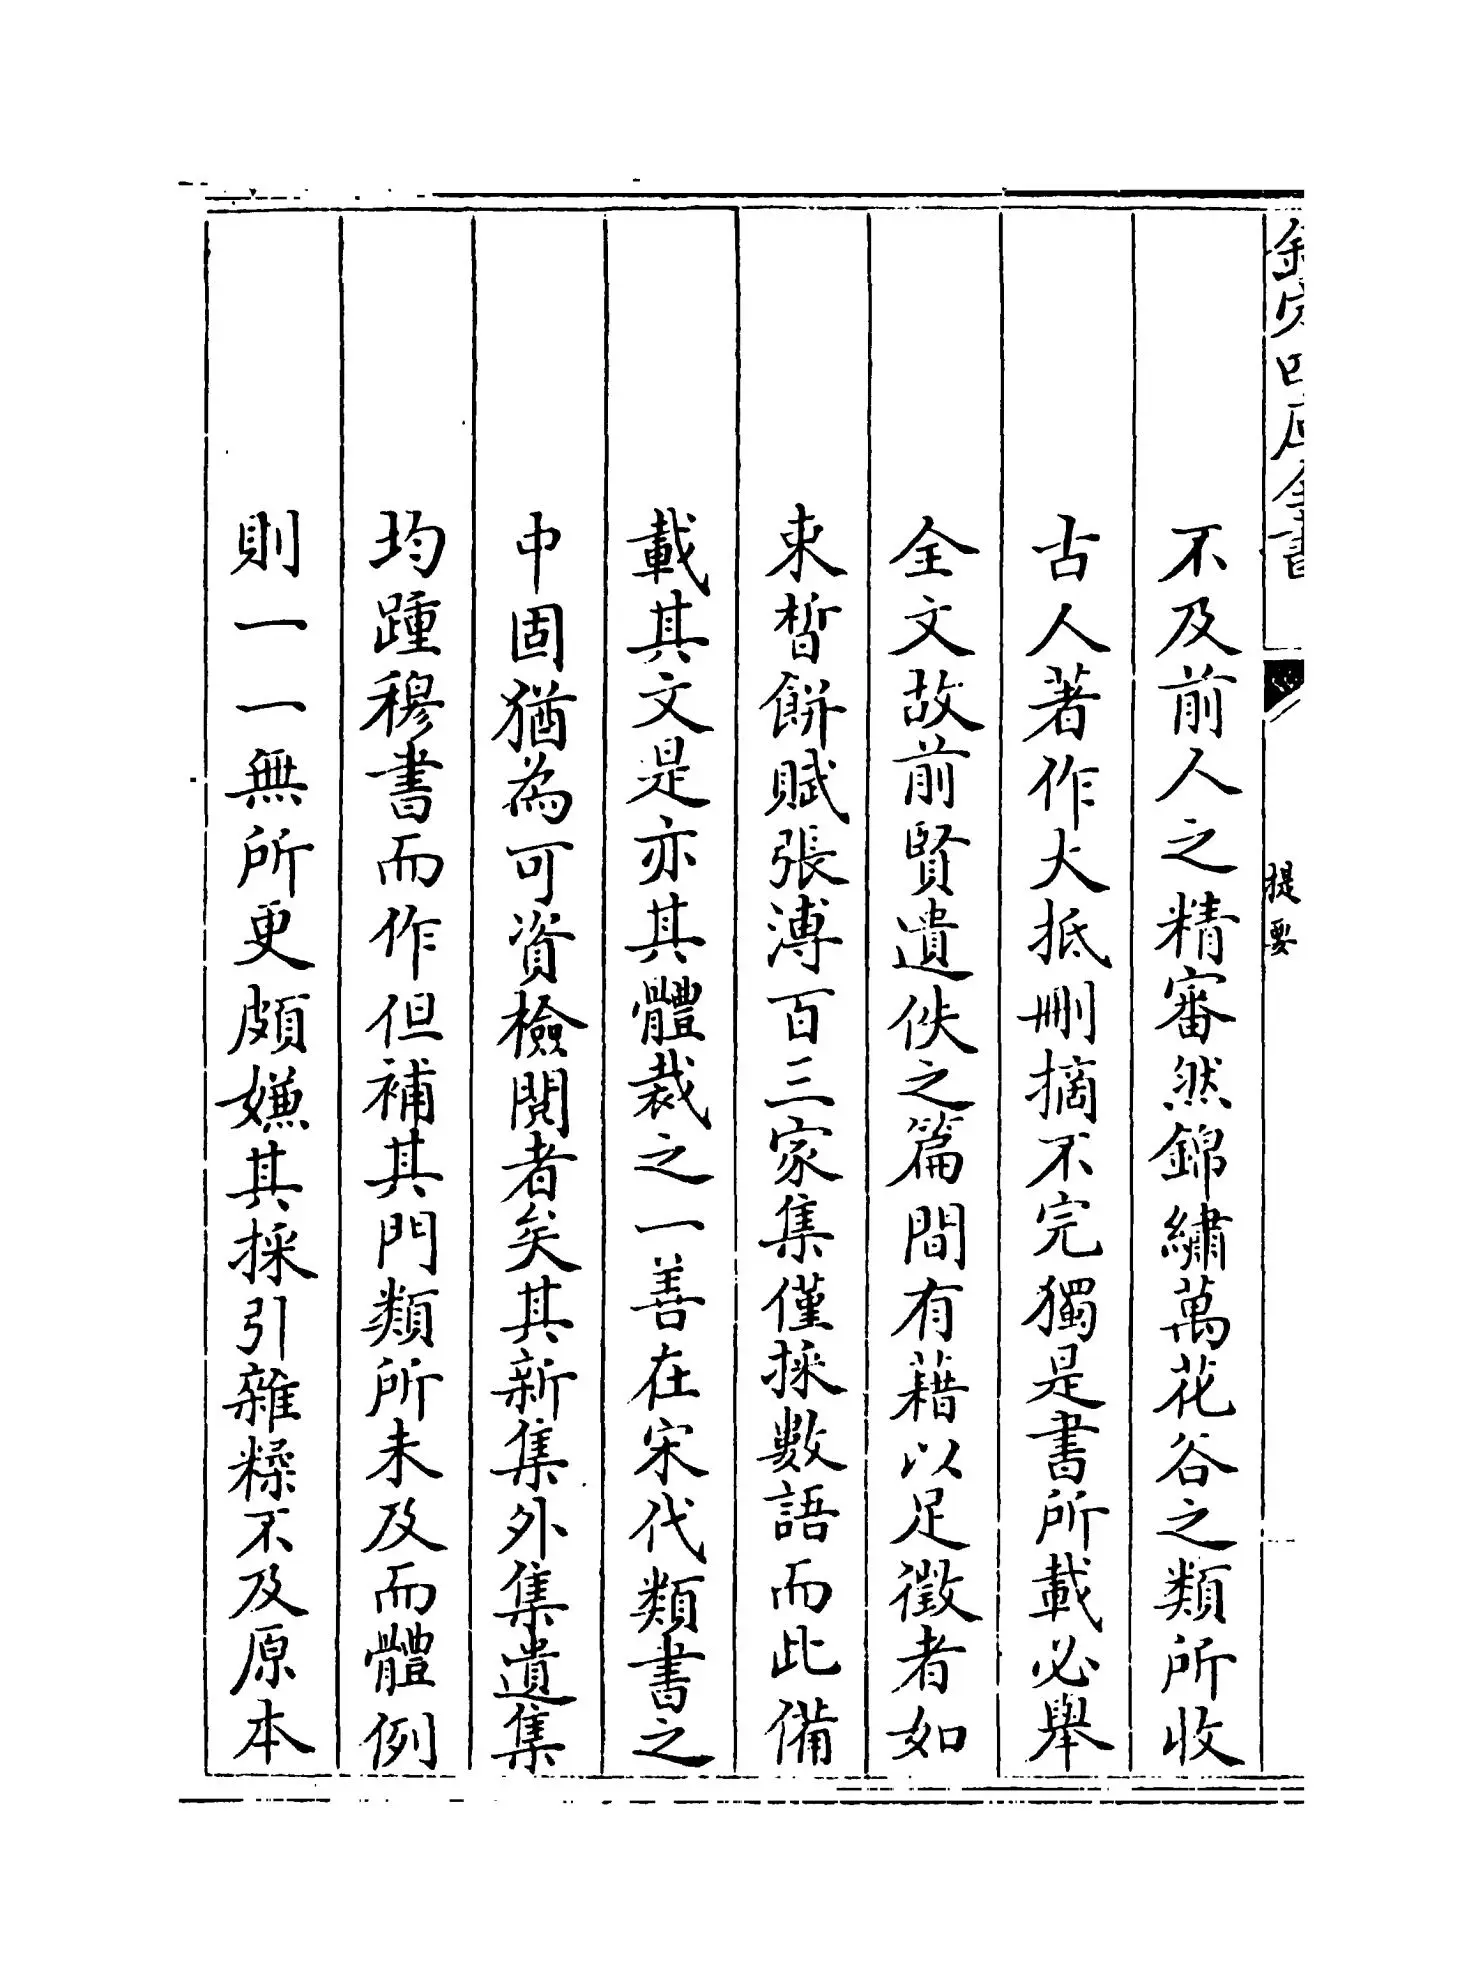 欽定四庫全書
提要
不及前人之精審然錦繡萬花谷之類所收
古人著作大抵刪摘不完獨是書所載必舉
全文故前賢遺佚之篇間有藉以足徵者如
束晳餅賦張溥百三家集僅採數語而此備
載其文是亦其體裁之一善在宋代類書之
中固猶為可資檢閱者矣其新集外集遺集
均踵穆書而作但補其門類所未及而體例
則一一無所更頗嫌其採引雜糅不及原本